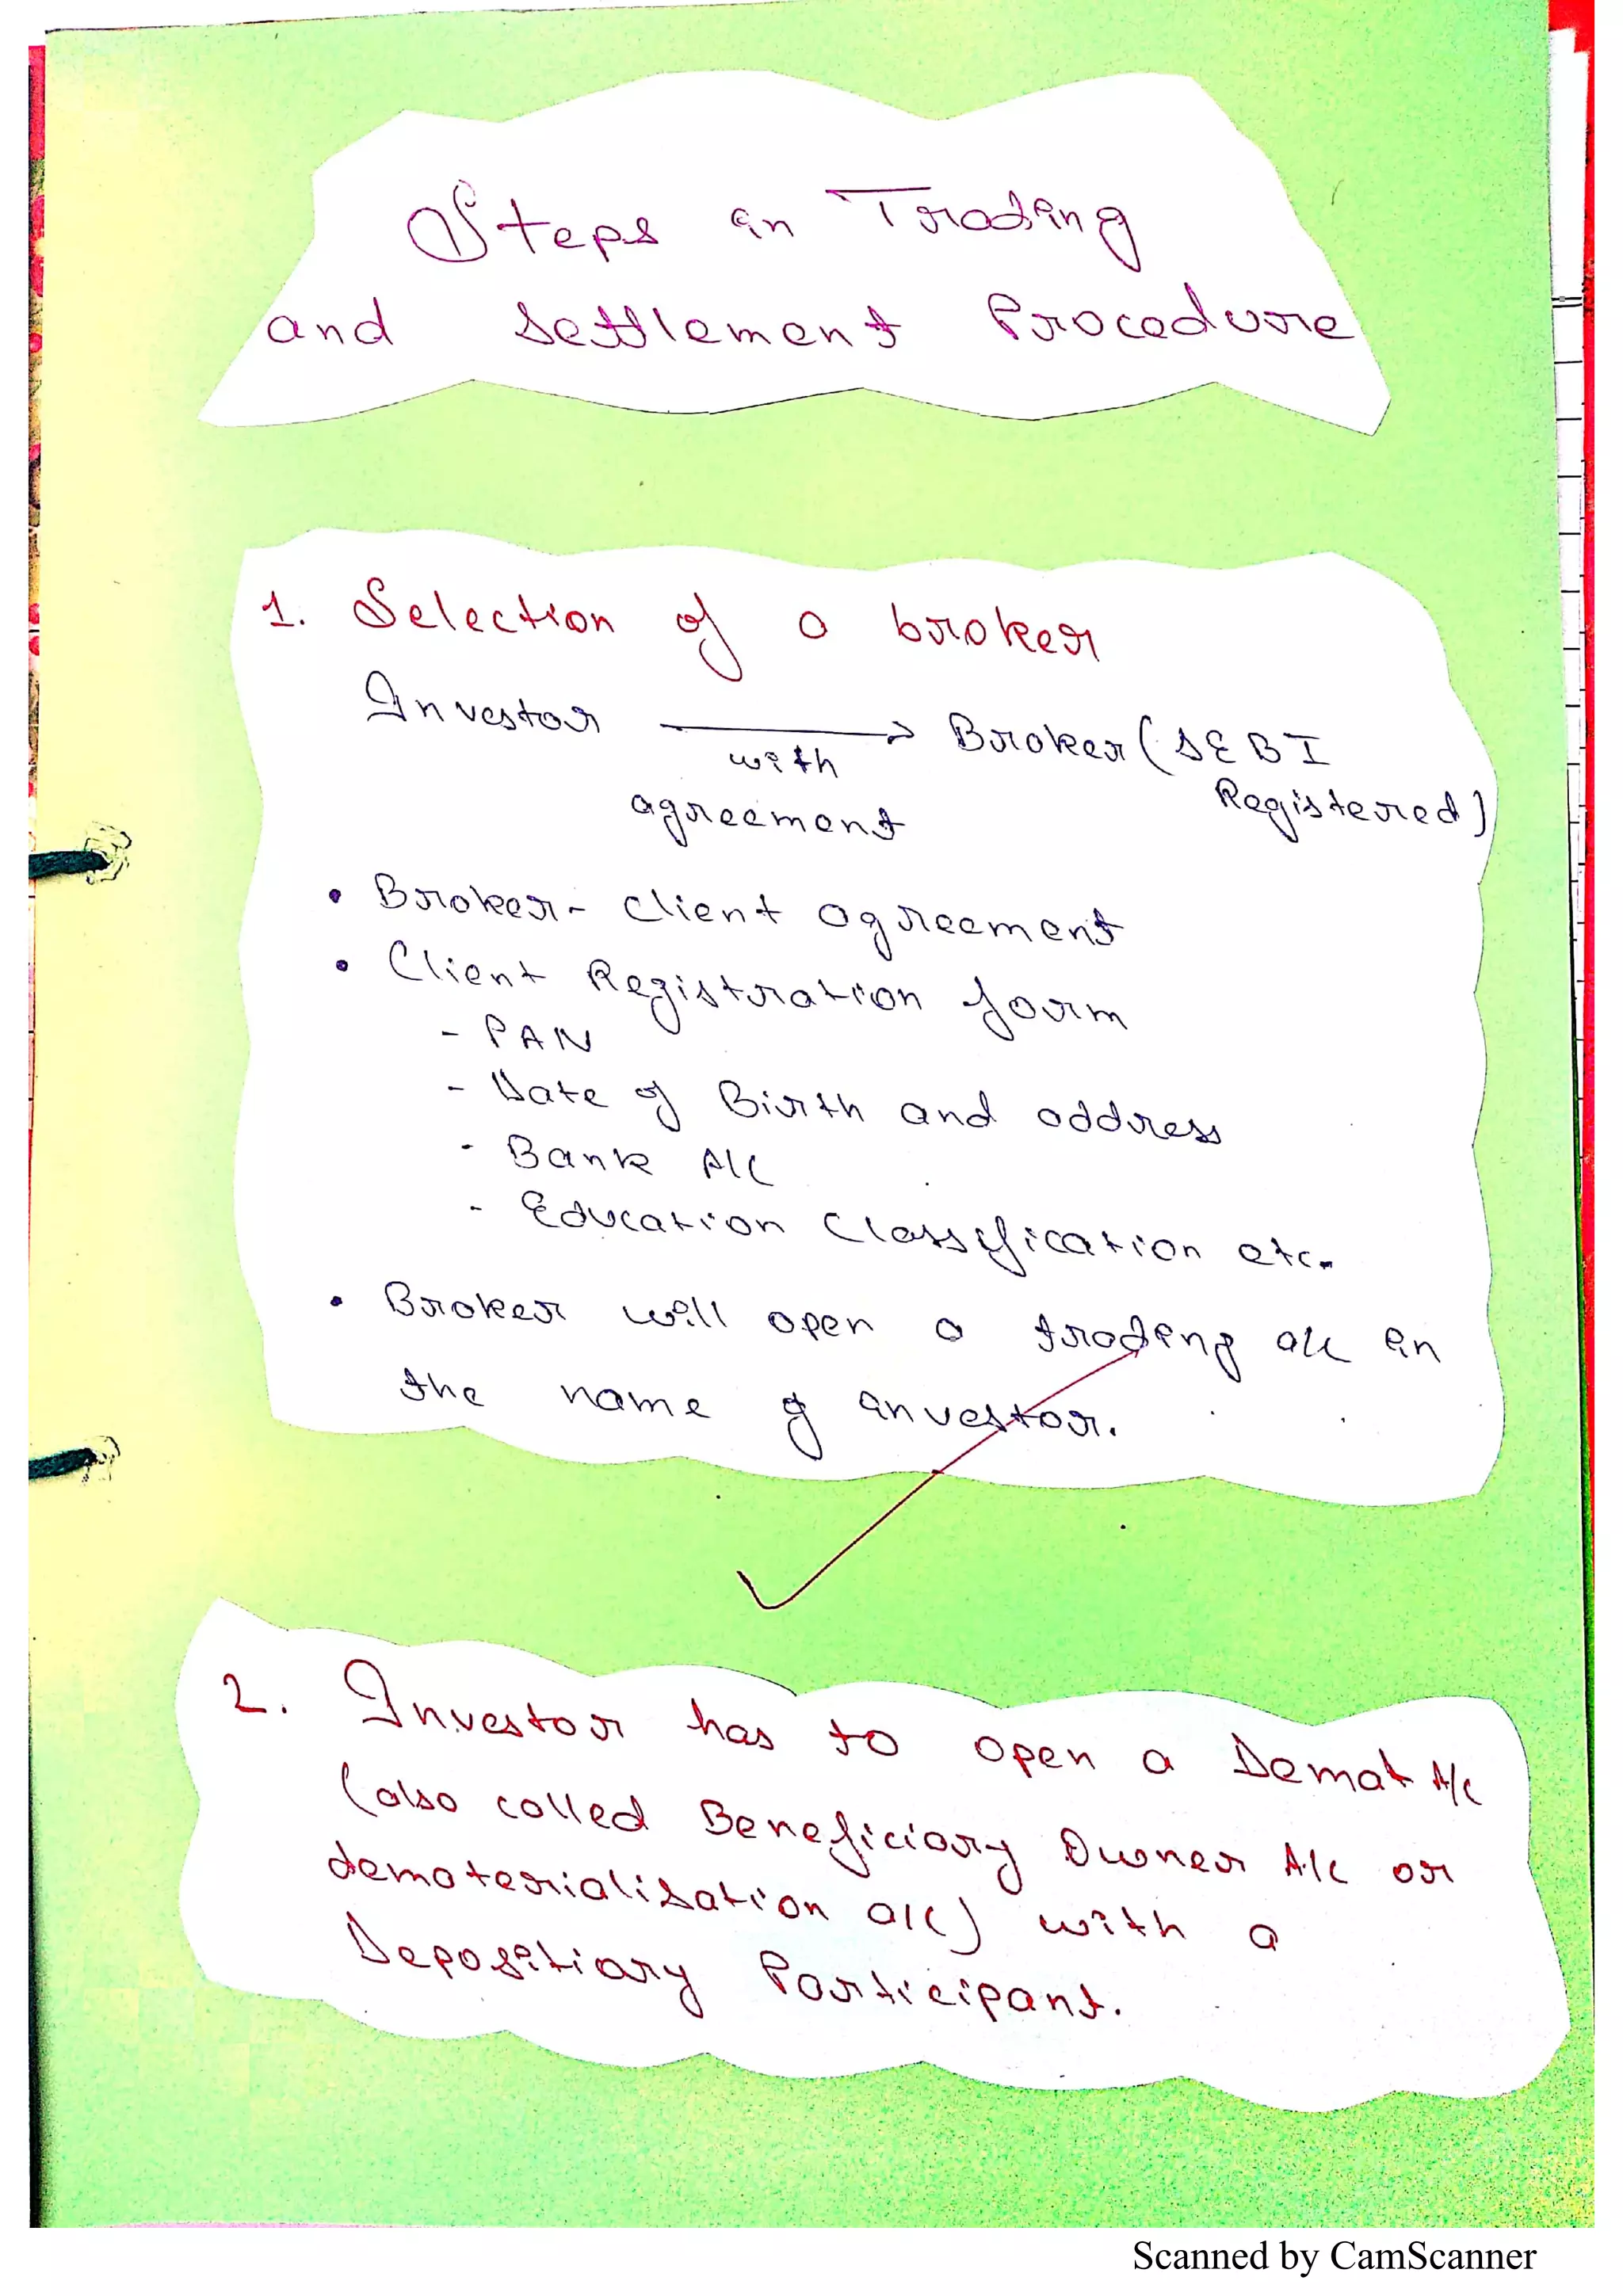 Steps in Trading
and Settlement Procedure
1. Selection of a broker
Investor → Broker (SEBI
with
Registered)
agreement
• Broker - Client agreement
• Client Registration form
- PAN
- Date of Birth and address
- Bank A/C
- Education Classification etc.
• Broker will open a trading a/c in
the name of investor.
2. Investor has to open a Demat A/c
(also called Beneficiary Owner A/c or
dematerialisation a/c) with a
Depositiary Participant.
Scanned by CamScanner